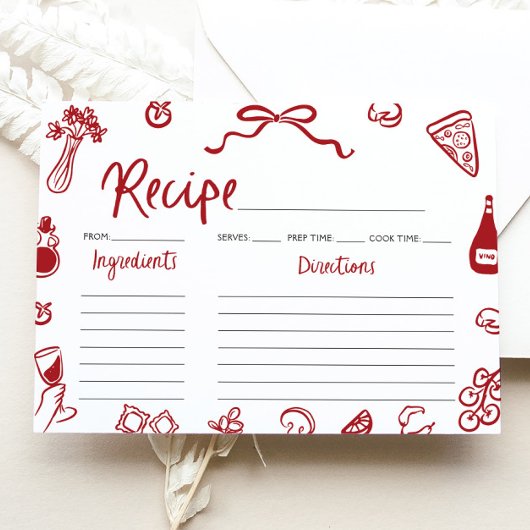 Recipe
FROM: SERVES: PREP TIME: COOK TIME:
Ingredients Directions
VINO